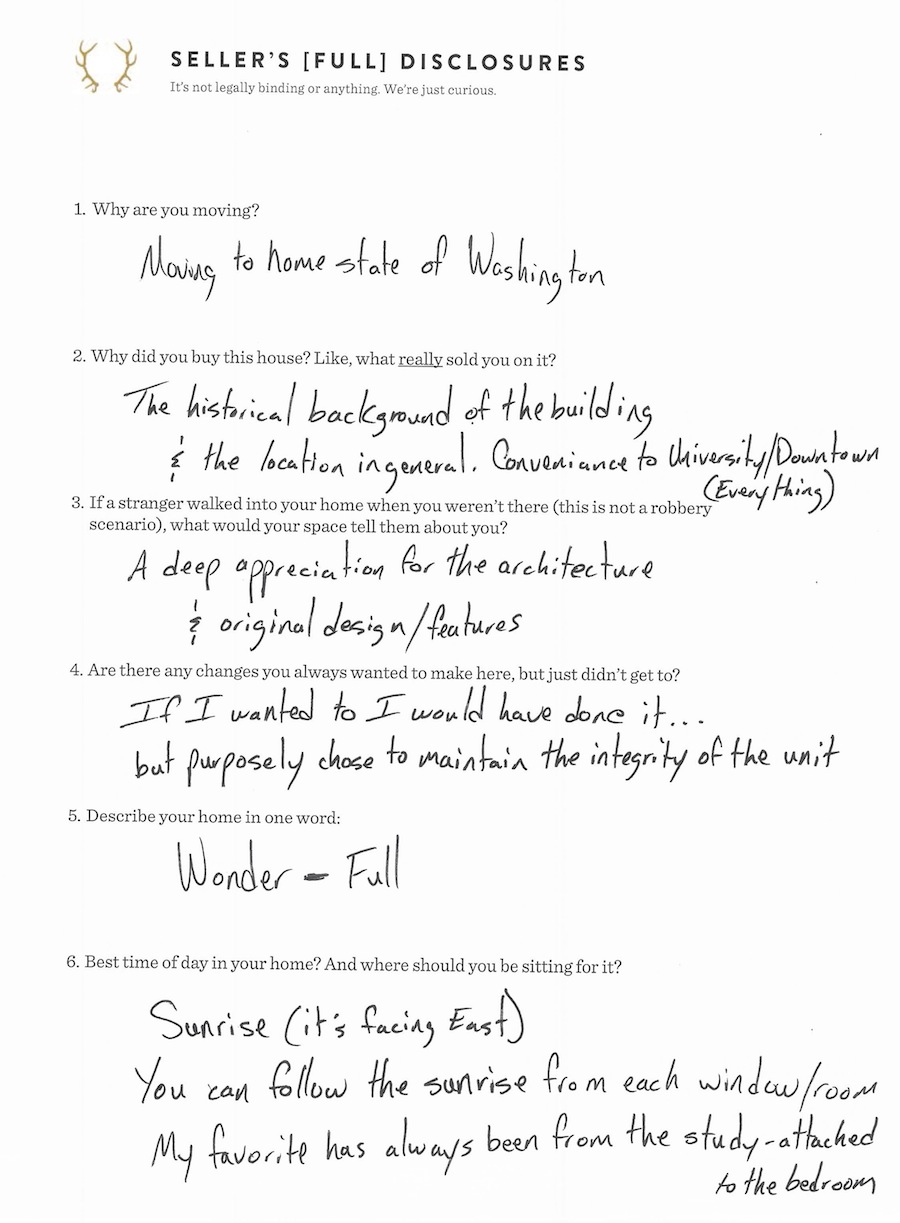 SELLER'S [FULL] DISCLOSURES
It's not legally binding or anything. We're just curious.
1. Why are you moving?
Moving to home state of Washington
2. Why did you buy this house? Like, what really sold you on it?
The historical background of the building
& the location in general. Conveniance to University/Downtown
(Everything)
3. If a stranger walked into your home when you weren't there (this is not a robbery
scenario), what would your space tell them about you?
A deep appreciation for the architecture
& original design/features
4. Are there any changes you always wanted to make here, but just didn't get to?
If I wanted to I would have done it...
but purposely chose to maintain the integrity of the unit
5. Describe your home in one word:
Wonder - Full
6. Best time of day in your home? And where should you be sitting for it?
Sunrise (it's facing East)
You can follow the sunrise from each window/room
My favorite has always been from the study-attached
to the bedroom